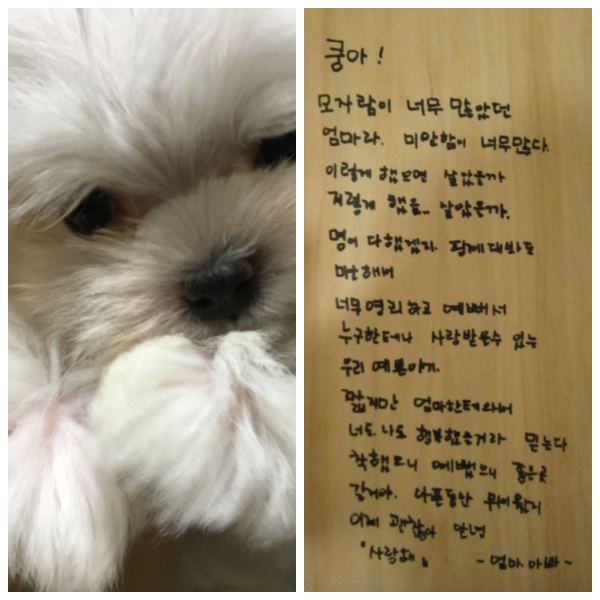 쿵아!
모자람이 너무 많았던
엄마라. 미안함이 너무많다.
이렇게 했으면 살았을까
저렇게 했을.. 살았을까.
명이 다했겠지. 핑계대봐도
미안해서
너무영리하고 예뻐서
누구한테나 사랑받을수 있는
우리 예쁜아가.
짧지만 엄마한테와서
너도. 나도 행복했을거라 믿는다
착했으니 예뻤으니 좋은곳
갈거야. 나쁜동안 무서웠지
이제 괜찮아 안녕
"사랑해"
- 엄마. 아빠 -